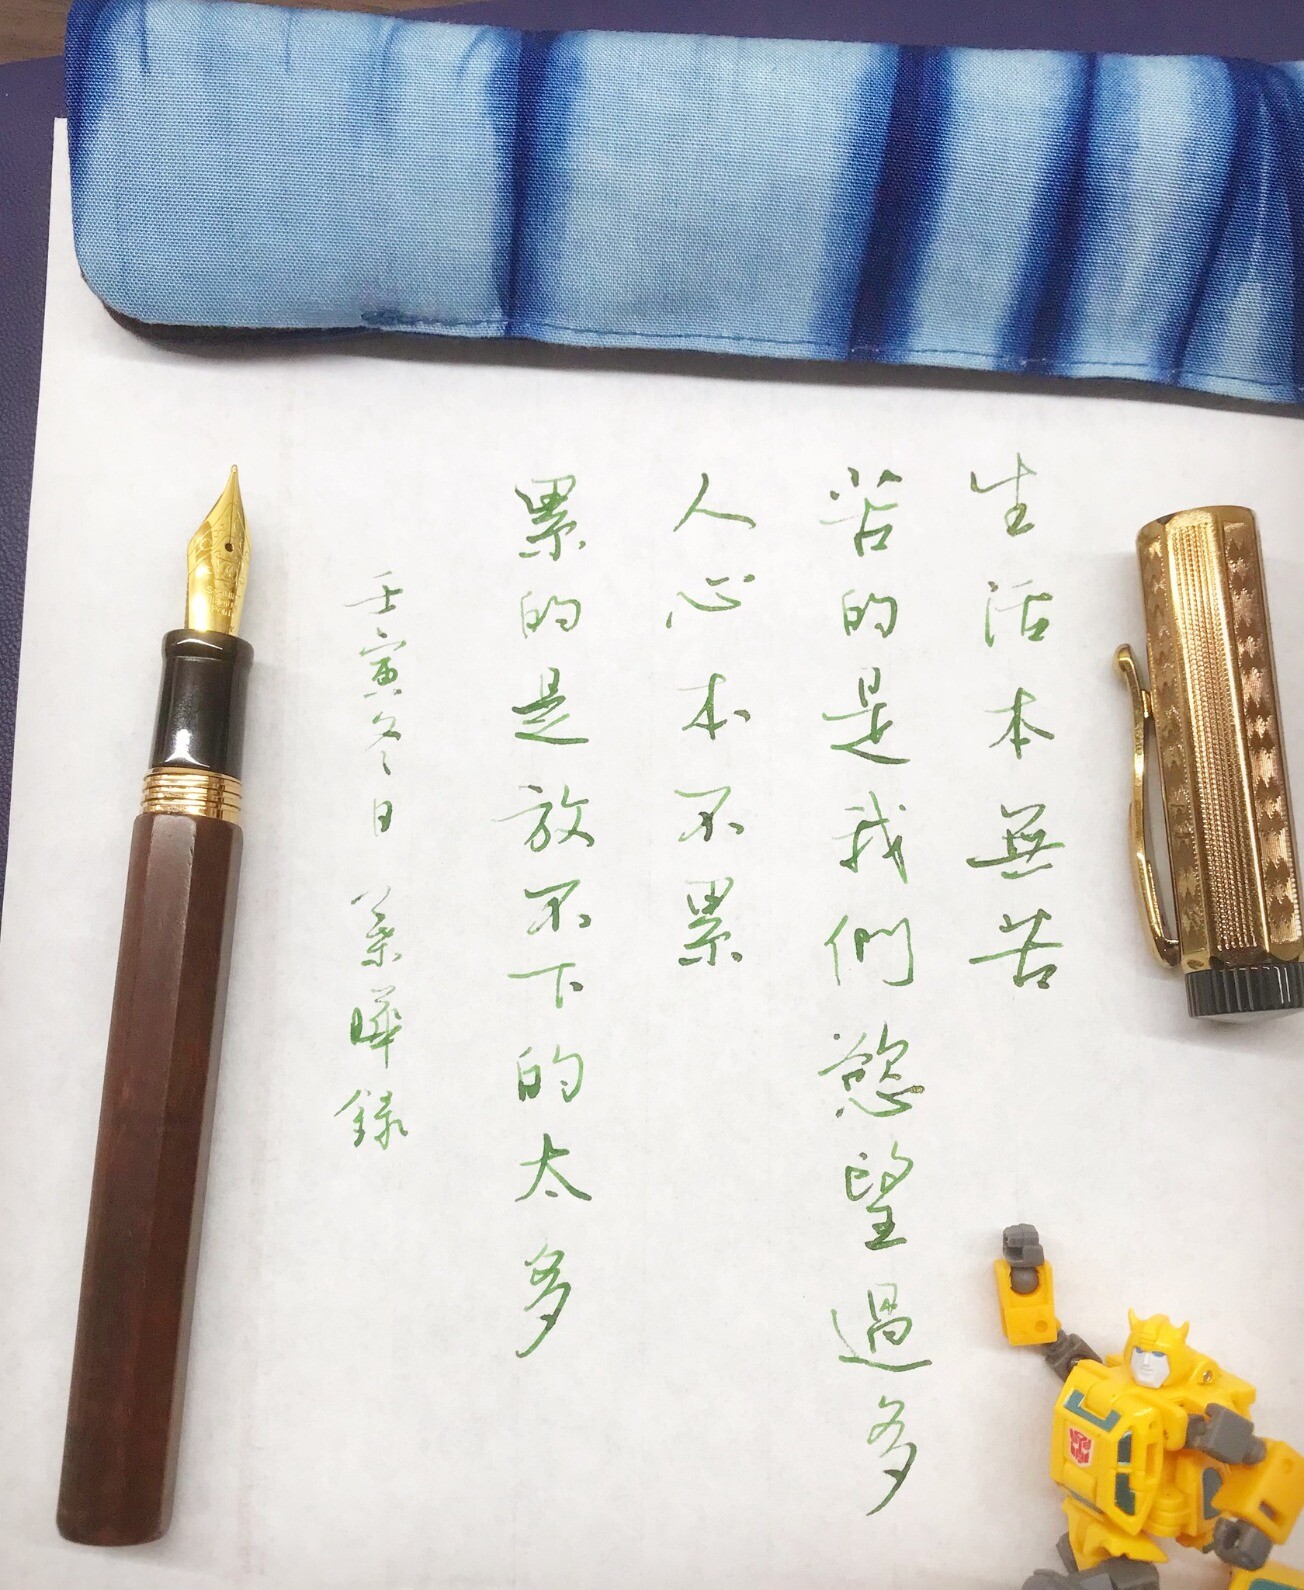 生活本無苦
苦的是我們慾望過多
人心本不累
累的是放不下的太多
壬寅冬日 葉曄錄